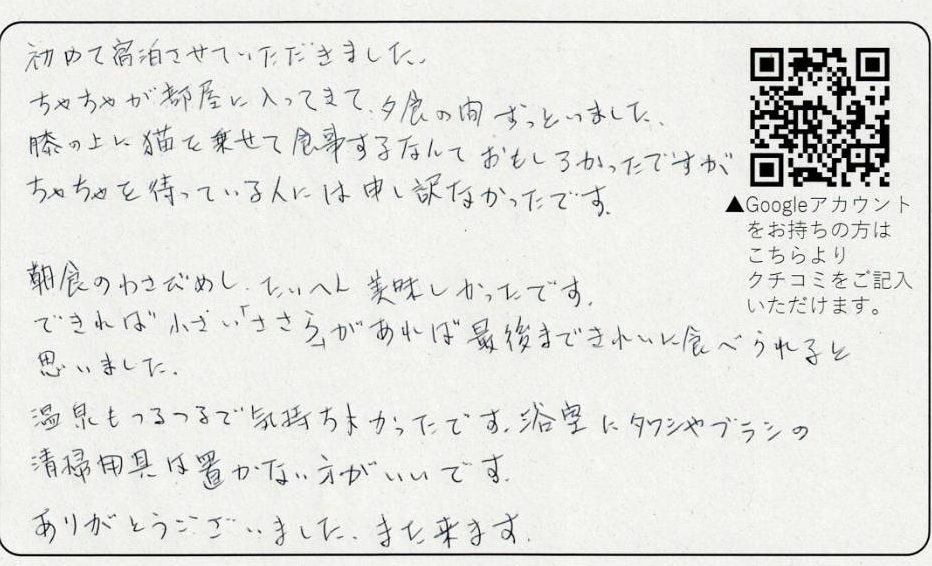 初めて宿泊させていただきました。
ちゃちゃが部屋に入ってきて、夕食の間ずっといました。
膝の上に猫を乗せて食事するなんておもしろかったですが
ちゃちゃを待っている人には申し訳なかったです。
朝食のわさびめし、たいへん美味しかったです。
できれば小さい「ささら」があれば最後まできれいに食べられると
思いました。
温泉もつるつるで気持ちよかったです。浴室にタワシやブラシの
清掃用具は置かない方がいいです。
ありがとうございました。また来ます。
▲Googleアカウント
をお持ちの方は
こちらより
クチコミをご記入
いただけます。